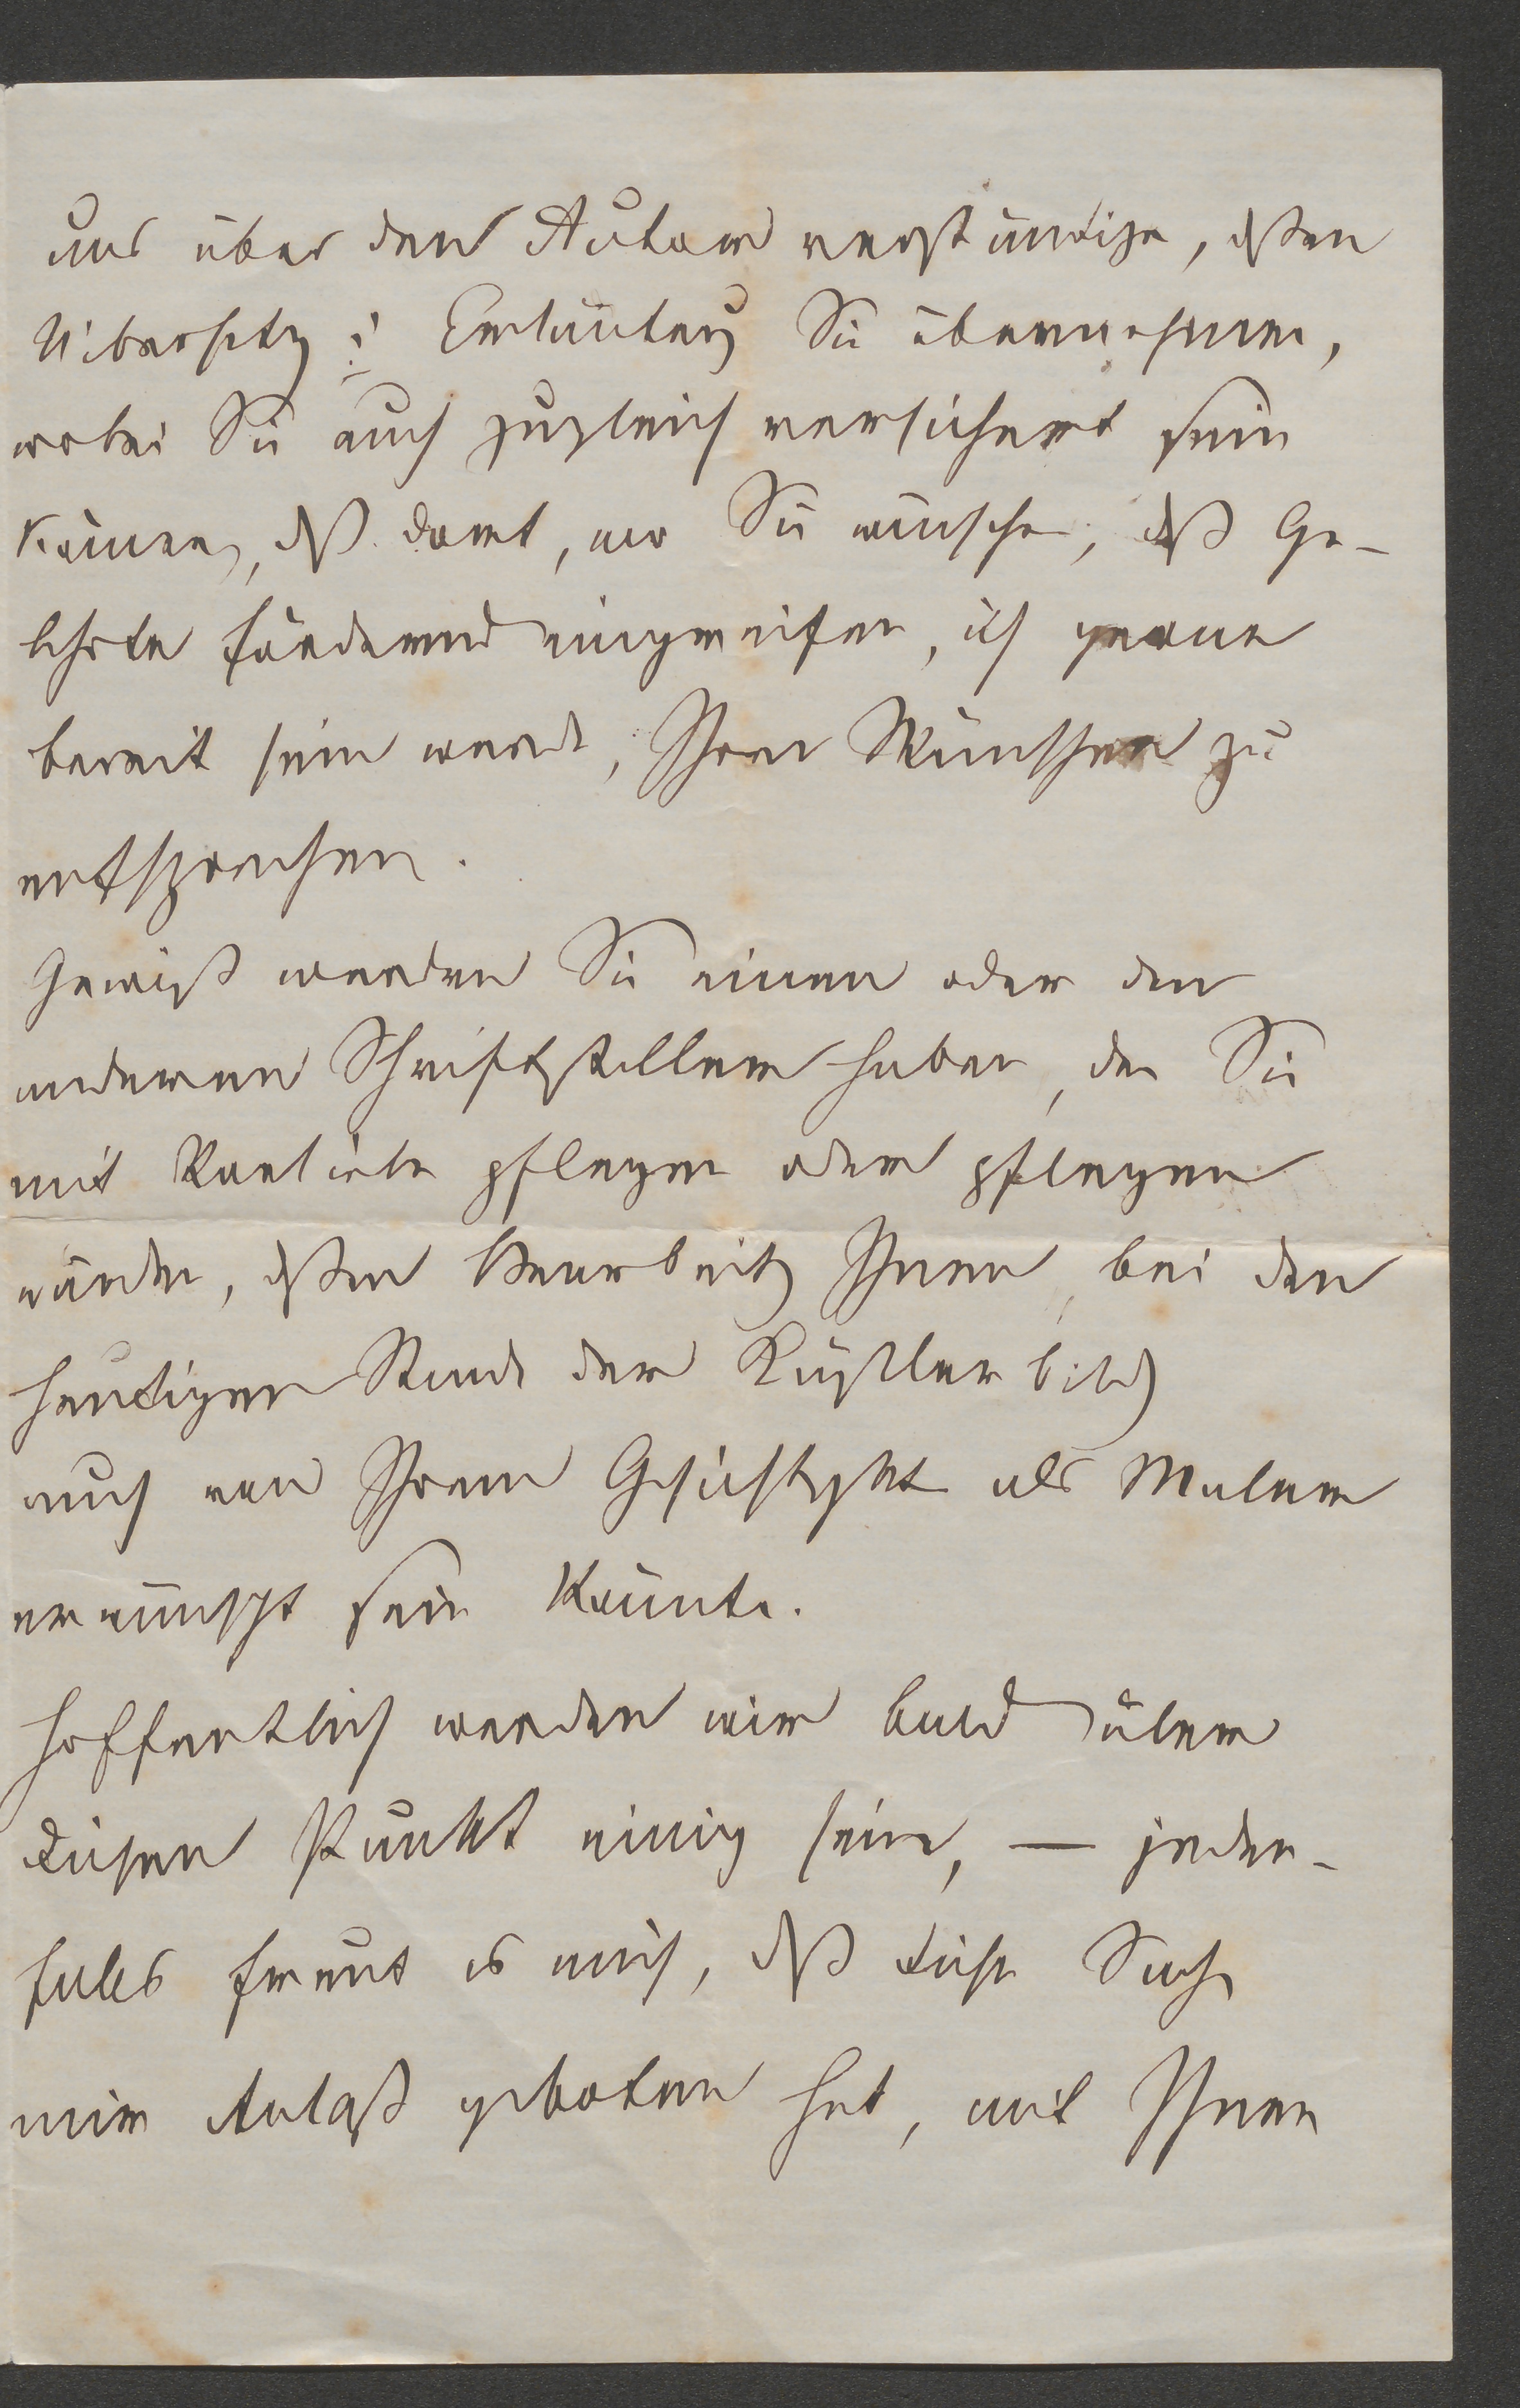 uns über den Autor verständige, dßen
Uibersetzg u Erläuterg Sie übernehmen,
wobei Sie auch zugleich versichert sein
können, dß dort, wo Sie wünschen, dß Ge-
lehrte fördernd eingreifen, ich gerne
bereit sein werde, Ihren Wünschen zu
entsprechen.
Gewiß werden Sie einen oder den
anderen Schriftsteller haben, den Sie
mit Vorliebe pflegen oder pflegen
würden, dßen Bearbeitg Ihnen, bei dem
heutigen Stande der Künstlerbildg
auch von Ihrem Gesichtspkt als Maler
erwünscht sein könnte.
Hoffentlich werden wir bald über
diesen Punkt einig sein, — jeden-
falls freut es mich, dß diese Sache
mir Anlaß geboten hat, mit Ihnen